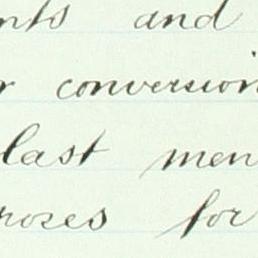 nts and
r conversion
last men
roses for